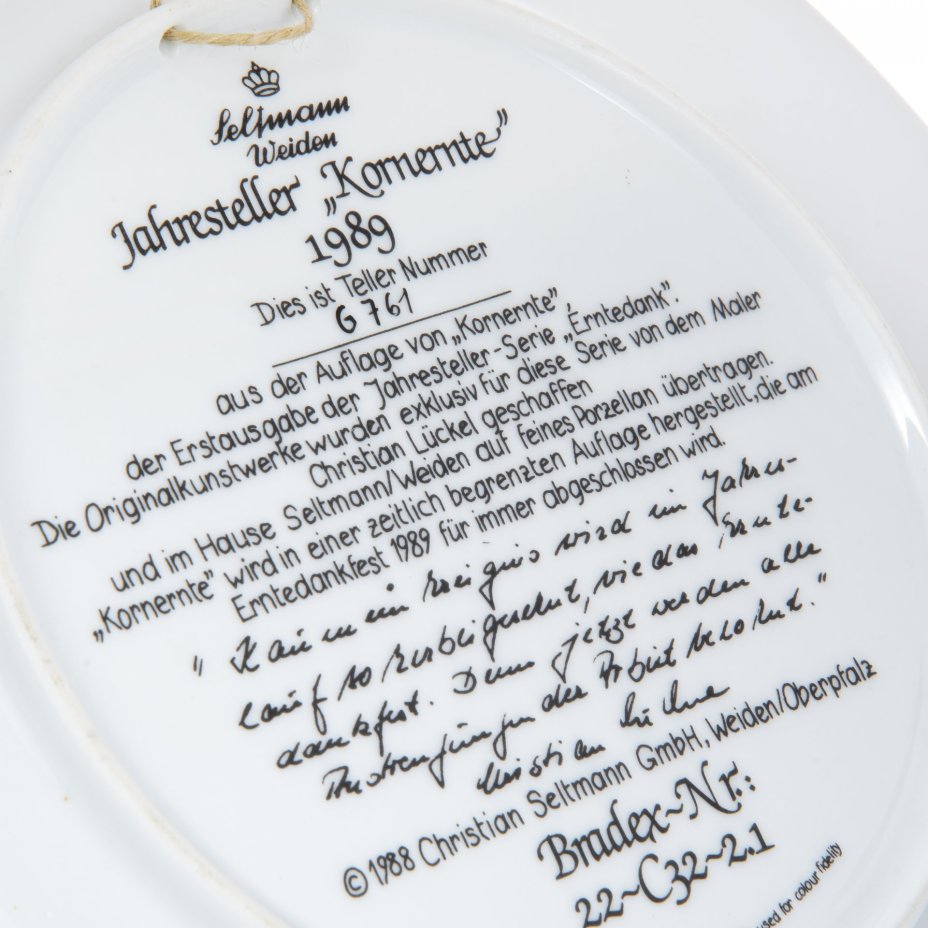 Seltmann
Weiden
Jahresteller „Kornernte”
1989
Dies ist Teller Nummer
G 761
aus der Auflage von „Kornernte”,
der Erstausgabe der Jahresteller-Serie „Erntedank”.
Die Originalkunstwerke wurden exklusiv für diese Serie von dem Maler
Christian Lückel geschaffen
und im Hause Seltmann/Weiden auf feines Porzellan übertragen.
„Kornernte” wird in einer zeitlich begrenzten Auflage hergestellt, die am
Erntedankfest 1989 für immer abgeschlossen wird.
" Kaum ein Ereignis wird im Jahres-
lauf so herbeigesehnt, wie das Ernte-
dankfest. Denn jetzt werden alle
Anstrengungen der Arbeit belohnt."
Christian Lückel
©1988 Christian Seltmann GmbH, Weiden/Oberpfalz
Bradex-Nr.:
22-C32-2.1
used for colour fidelity